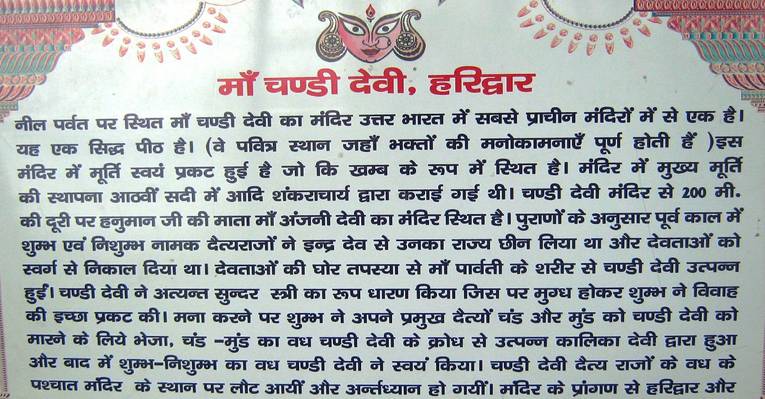 माँ चण्डी देवी, हरिद्वार
नील पर्वत पर स्थित माँ चण्डी देवी का मंदिर उत्तर भारत में सबसे प्राचीन मंदिरों में से एक है।
यह एक सिद्ध पीठ है। (वे पवित्र स्थान जहाँ भक्तों की मनोकामनाएँ पूर्ण होती हैं )इस
मंदिर में मूर्ति स्वयं प्रकट हुई है जो कि खम्ब के रूप में स्थित है। मंदिर में मुख्य मूर्ति
की स्थापना आठवीं सदी में आदि शंकराचार्य द्वारा कराई गई थी। चण्डी देवी मंदिर से 200 मी.
की दूरी पर हनुमान जी की माता माँ अंजनी देवी का मंदिर स्थित है। पुराणों के अनुसार पूर्व काल में
शुम्भ एवं निशुम्भ नामक दैत्यराजों ने इन्द्र देव से उनका राज्य छीन लिया था और देवताओं को
स्वर्ग से निकाल दिया था। देवताओं की घोर तपस्या से माँ पार्वती के शरीर से चण्डी देवी उत्पन्न
हुईं। चण्डी देवी ने अत्यन्त सुन्दर स्त्री का रूप धारण किया जिस पर मुग्ध होकर शुम्भ ने विवाह
की इच्छा प्रकट की। मना करने पर शुम्भ ने अपने प्रमुख दैत्यों चंड और मुंड को चण्डी देवी को
मारने के लिये भेजा, चंड -मुंड का वध चण्डी देवी के क्रोध से उत्पन्न कालिका देवी द्वारा हुआ
और बाद में शुम्भ-निशुम्भ का वध चण्डी देवी ने स्वयं किया। चण्डी देवी दैत्य राजों के वध के
पश्चात मंदिर के स्थान पर लौट आयीं और अर्न्तध्यान हो गयीं। मंदिर के प्रांगण से हरिद्वार और